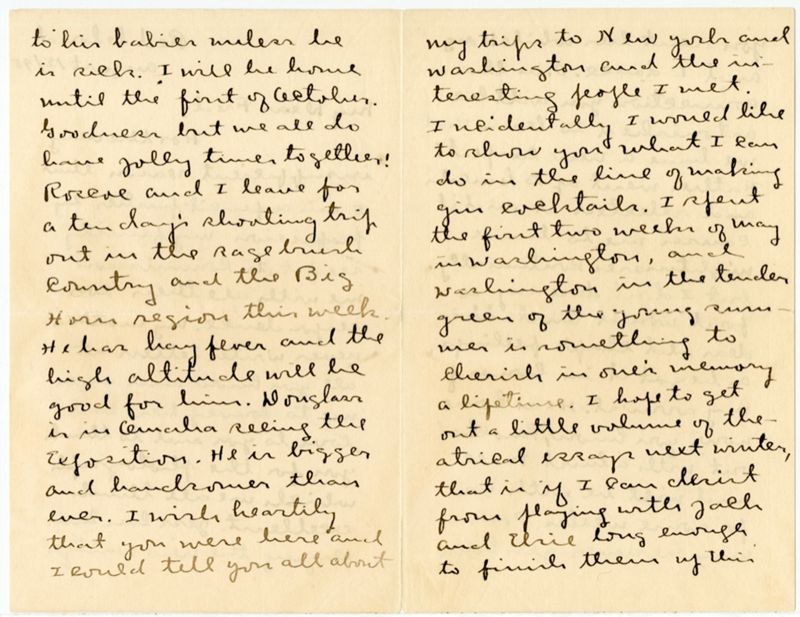 to his babies unless he
is sick. I will be home
until the first of October.
Goodness but we all do
have jolly times together!
Roscoe and I leave for
a ten day's shooting trip
out in the sagebrush
country and the Big
Horn region this week.
He has hay fever and the
high altitude will be
good for him. Douglass
is in Omaha seeing the
Exposition. He is bigger
and handsomer than
ever. I wish heartily
that you were here and
I could tell you all about
my trips to New york and
Washington and the in-
teresting people I met.
Incidentally I would like
to show you what I can
do in the line of making
gin cocktails. I spent
the first two weeks of May
in Washington, and
Washington in the tender
green of the young sum-
mer is something to
cherish in one's memory
a lifetime. I hope to get
out a little volume of the-
atrical essays next winter,
that is if I can desist
from playing with Jack
and Elsie long enough
to finish them up this